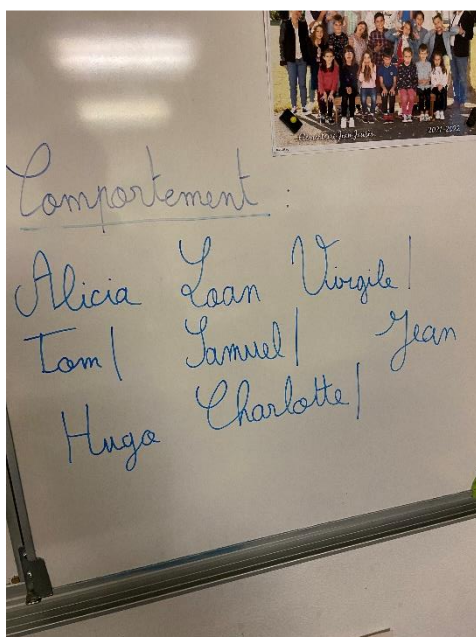 Jean Jaurès 2021-2022
Comportement :
Alicia Loan Virgile|
Tom| Samuel| Jean
Hugo Charlotte|